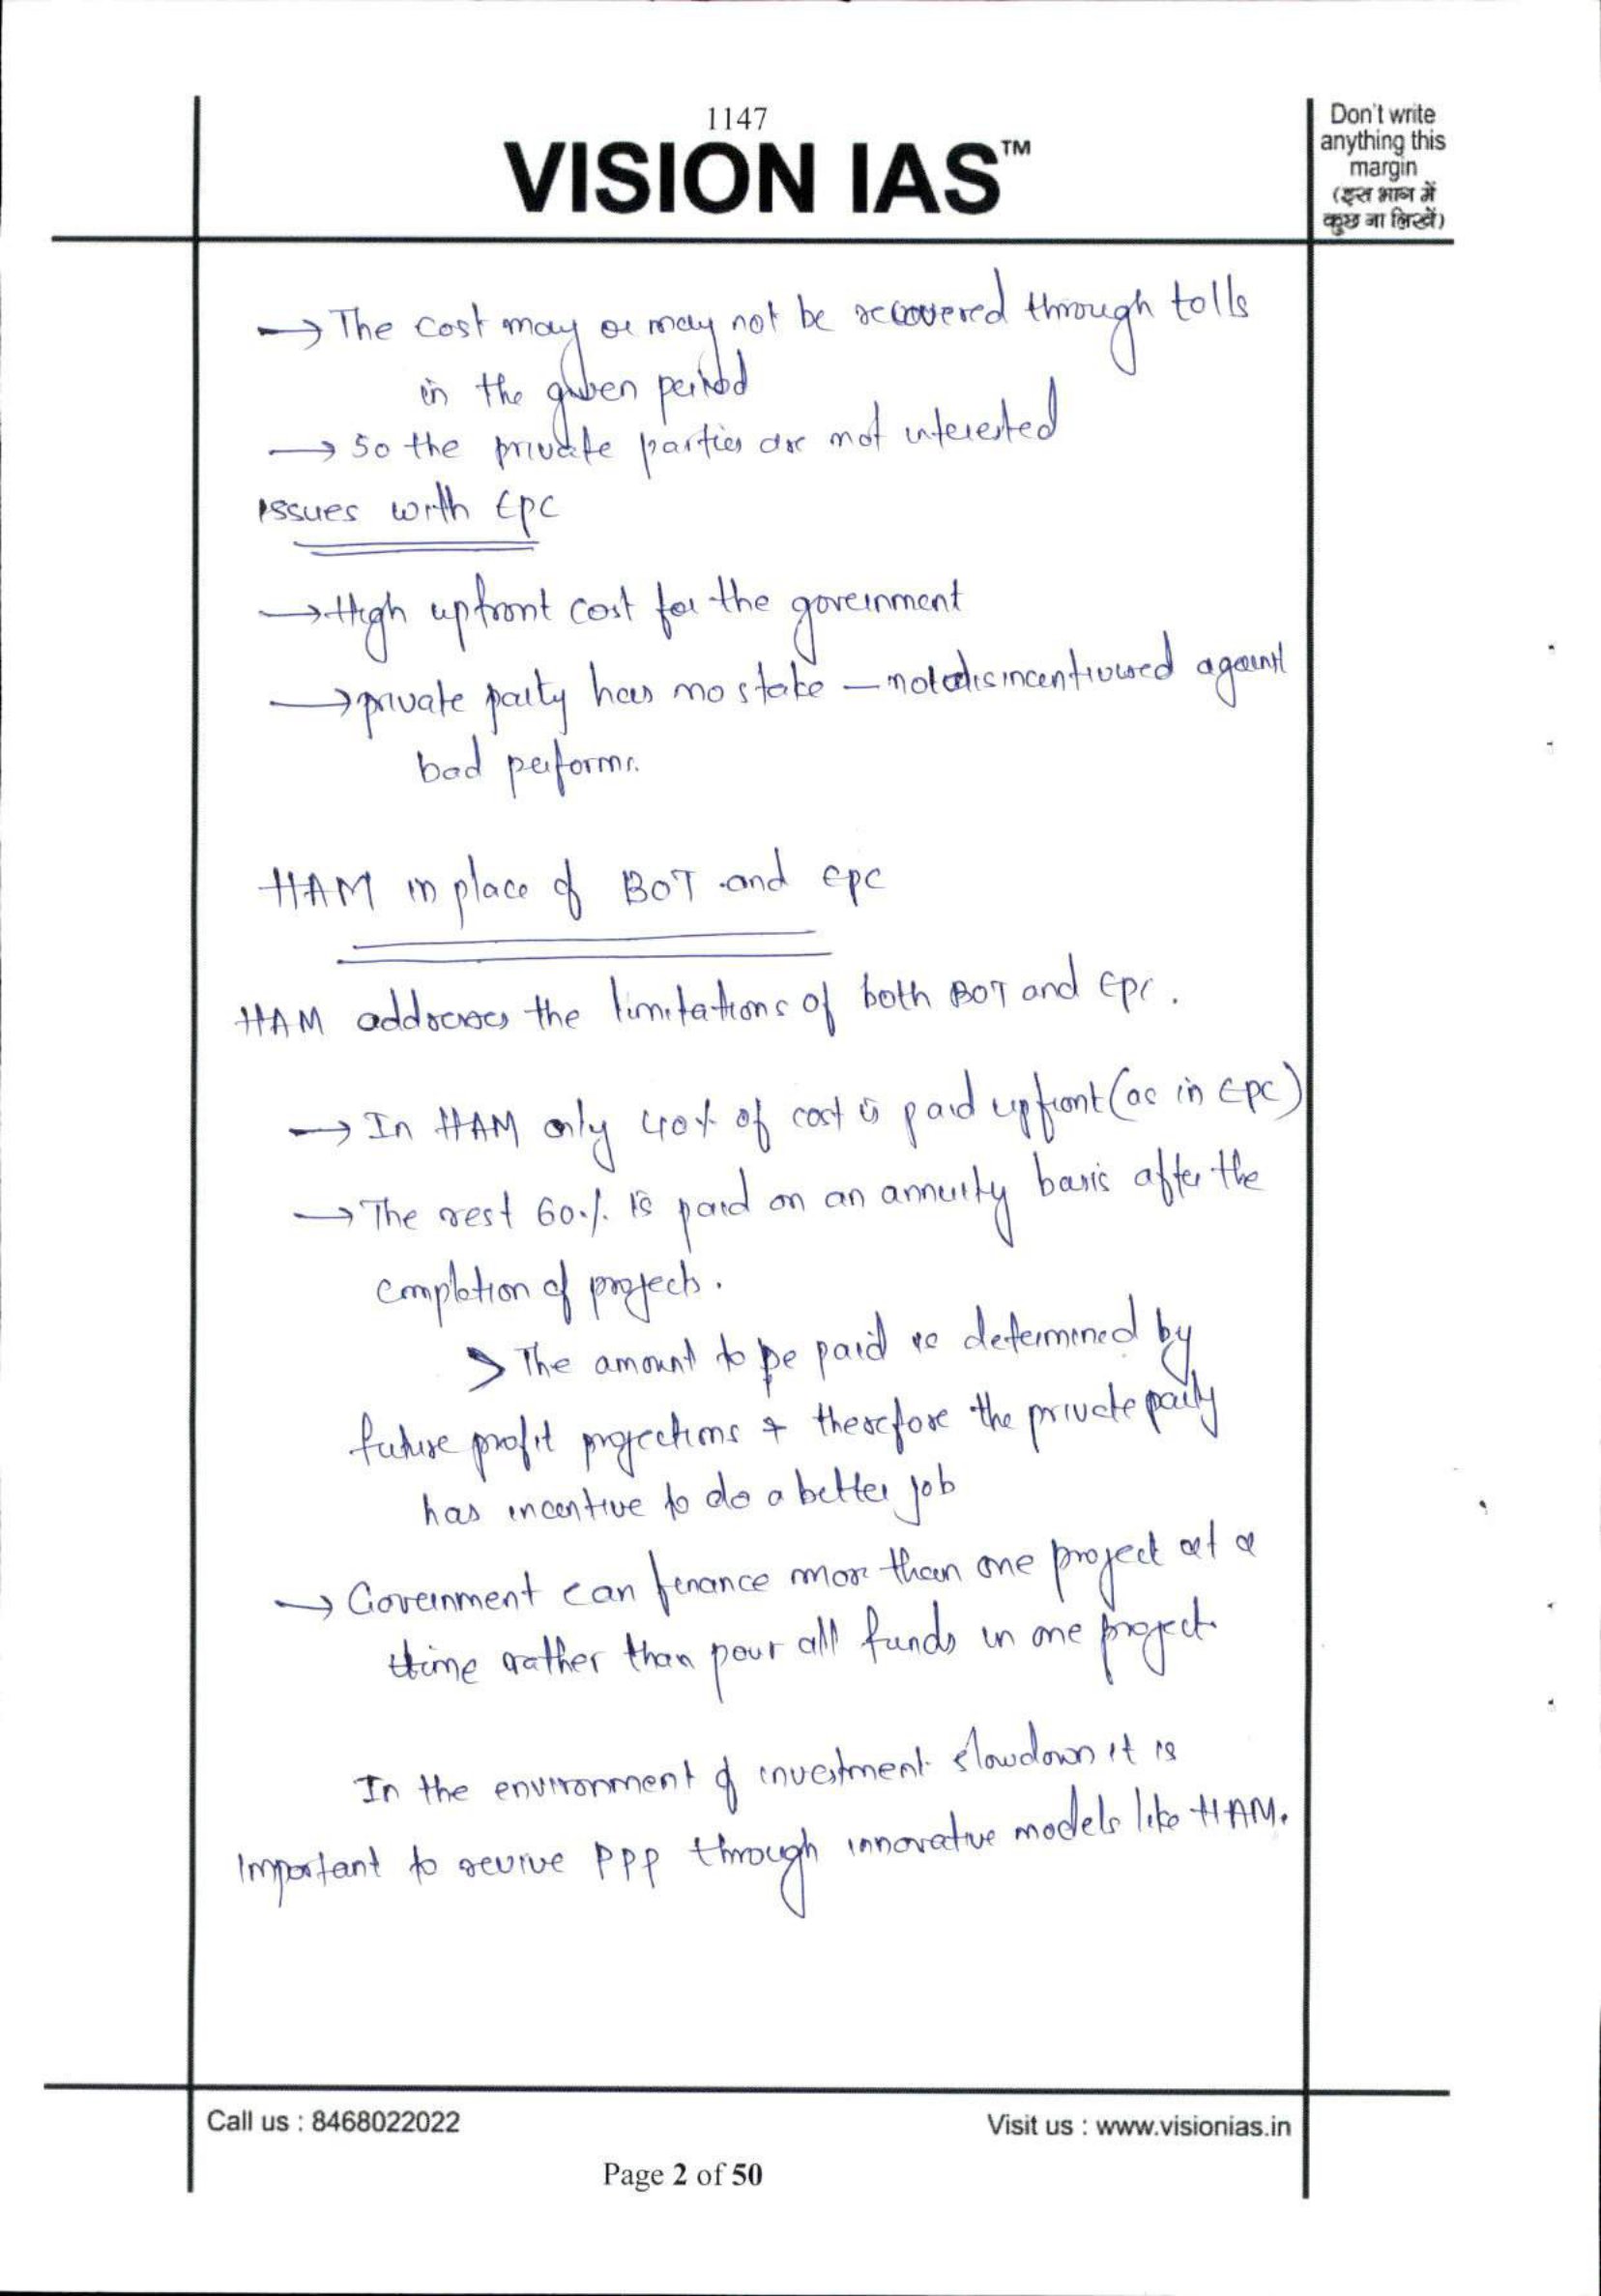 1147
VISION IAS™
Don't write
anything this
margin
(इस भाग में
कुछ ना लिखें)
→ The cost may or may not be recovered through tolls
in the given period
→ So the private parties are not interested
Issues with EPC
→ High upfront cost for the government
→ private party has no stake – not disincentivised against
bad perform.
HAM in place of BOT and EPC
HAM addresses the limitations of both BOT and EPC.
→ In HAM only 40% of cost is paid upfront (as in EPC)
→ The rest 60% is paid on an annuity basis after the
completion of projects.
> The amount to be paid is determined by
future profit projections & therefore the private party
has incentive to do a better job
→ Government can finance more than one project at a
time rather than pour all funds in one project.
In the environment of investment slowdown it is
Important to revive PPP through innovative models like HAM.
Call us : 8468022022
Visit us : www.visionias.in
Page 2 of 50